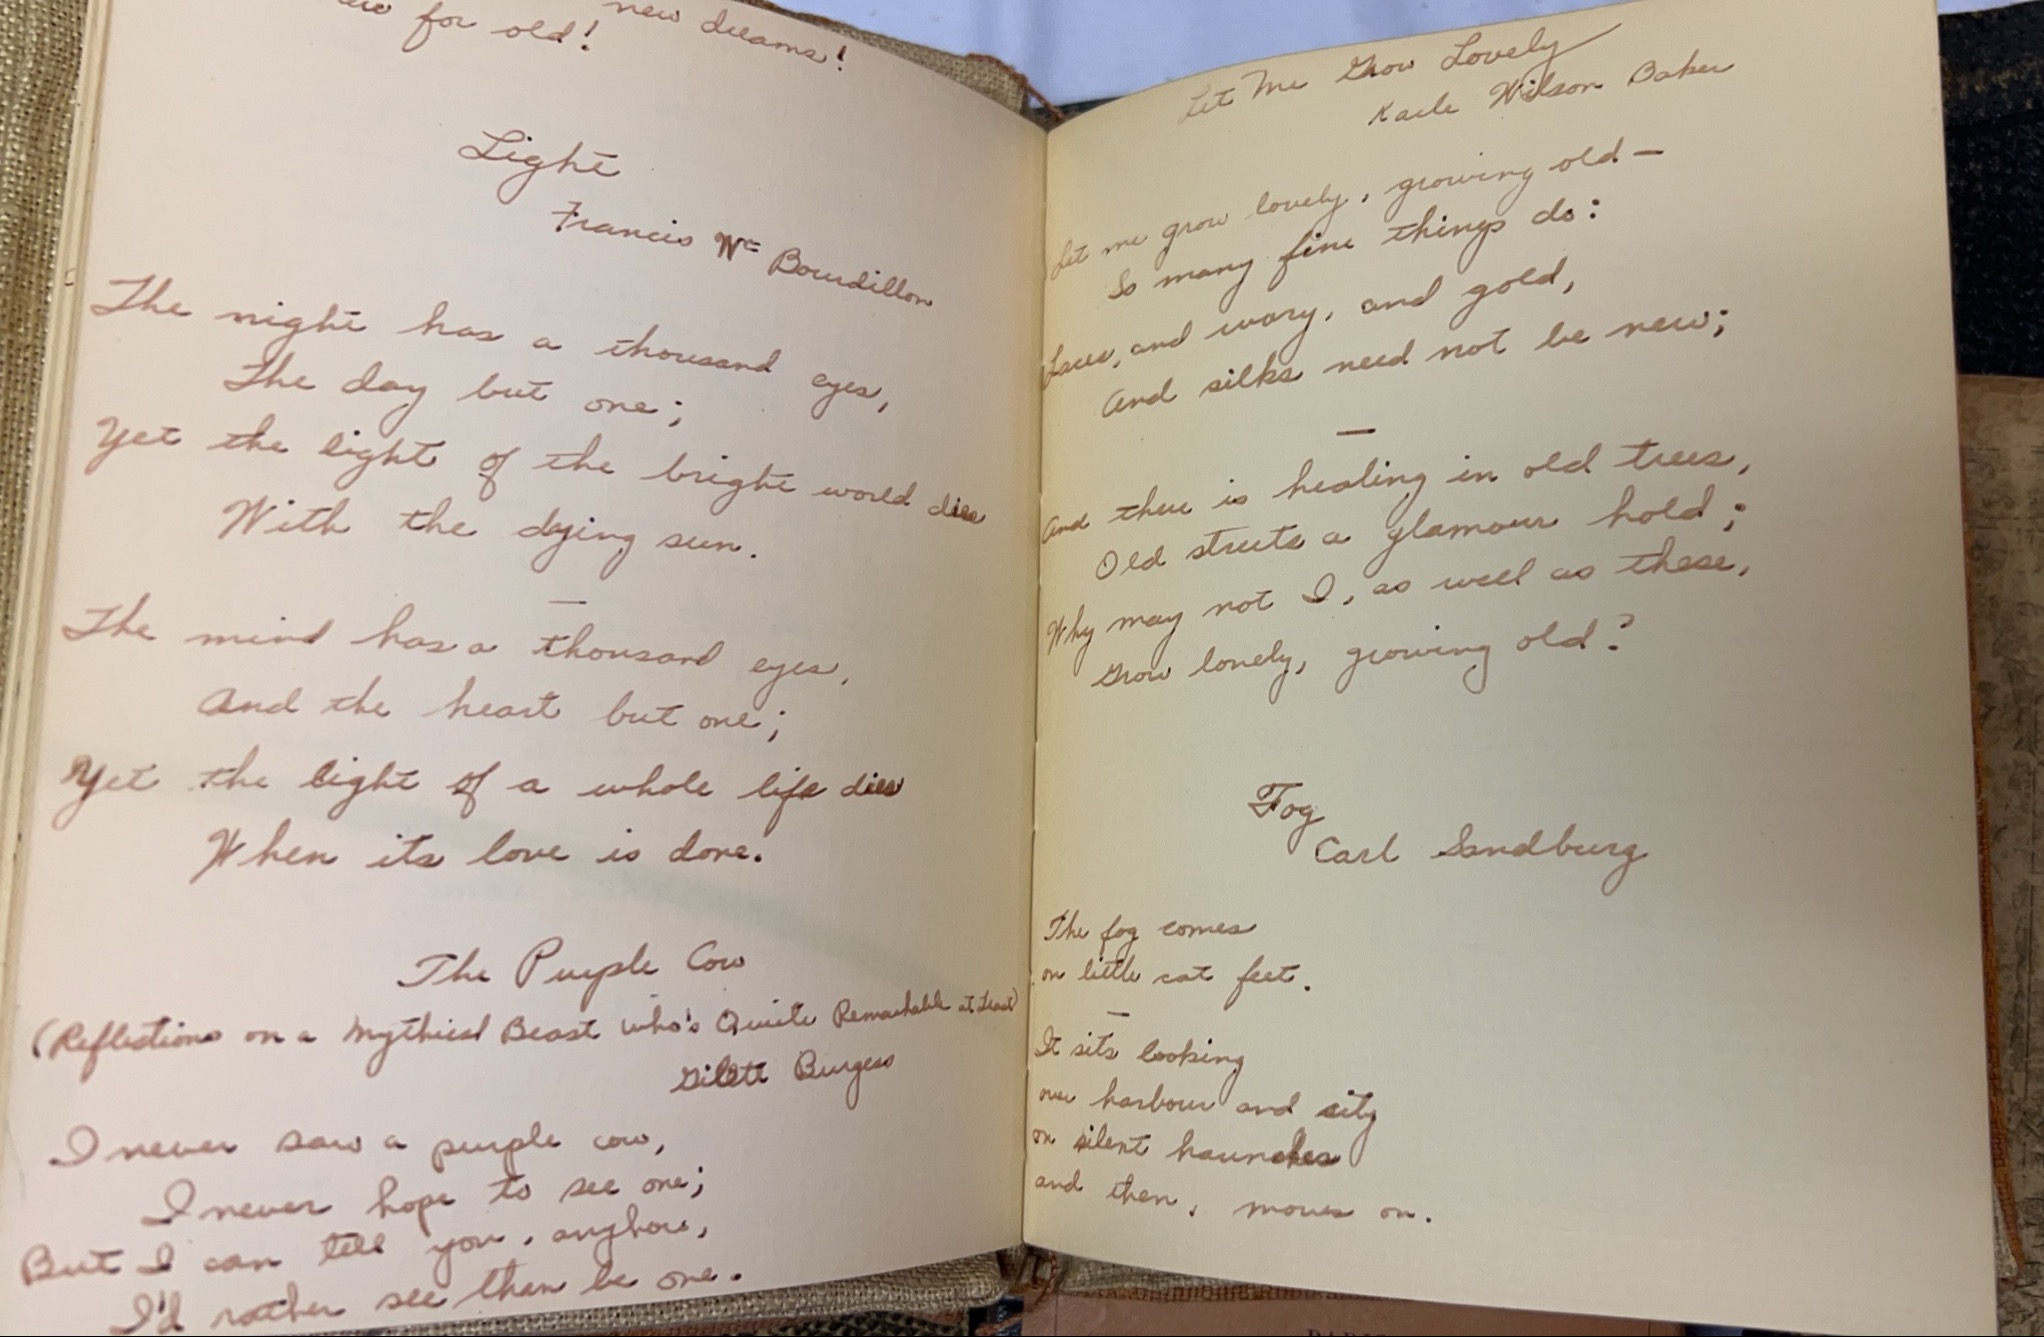 new dreams!
for old!
Light
Francis Wm Bourdillon
The night has a thousand eyes,
The day but one;
Yet the light of the bright world dies
With the dying sun.
—
The mind has a thousand eyes,
And the heart but one;
Yet the light of a whole life dies
When its love is done.
The Purple Cow
(Reflections on a Mythical Beast who's Quite Remarkable at Least)
Gilett Burgess
I never saw a purple cow,
I never hope to see one;
But I can tell you, anyhow,
I'd rather see than be one.
Let Me Grow Lovely
Karle Wilson Baker
Let me grow lovely, growing old—
So many fine things do:
Laces, and ivory, and gold,
And silks need not be new;
—
And there is healing in old trees,
Old streets a glamour hold;
Why may not I, as well as these,
Grow lovely, growing old?
Fog
Carl Sandburg
The fog comes
on little cat feet.
—
It sits looking
over harbour and city
on silent haunches
and then, moves on.